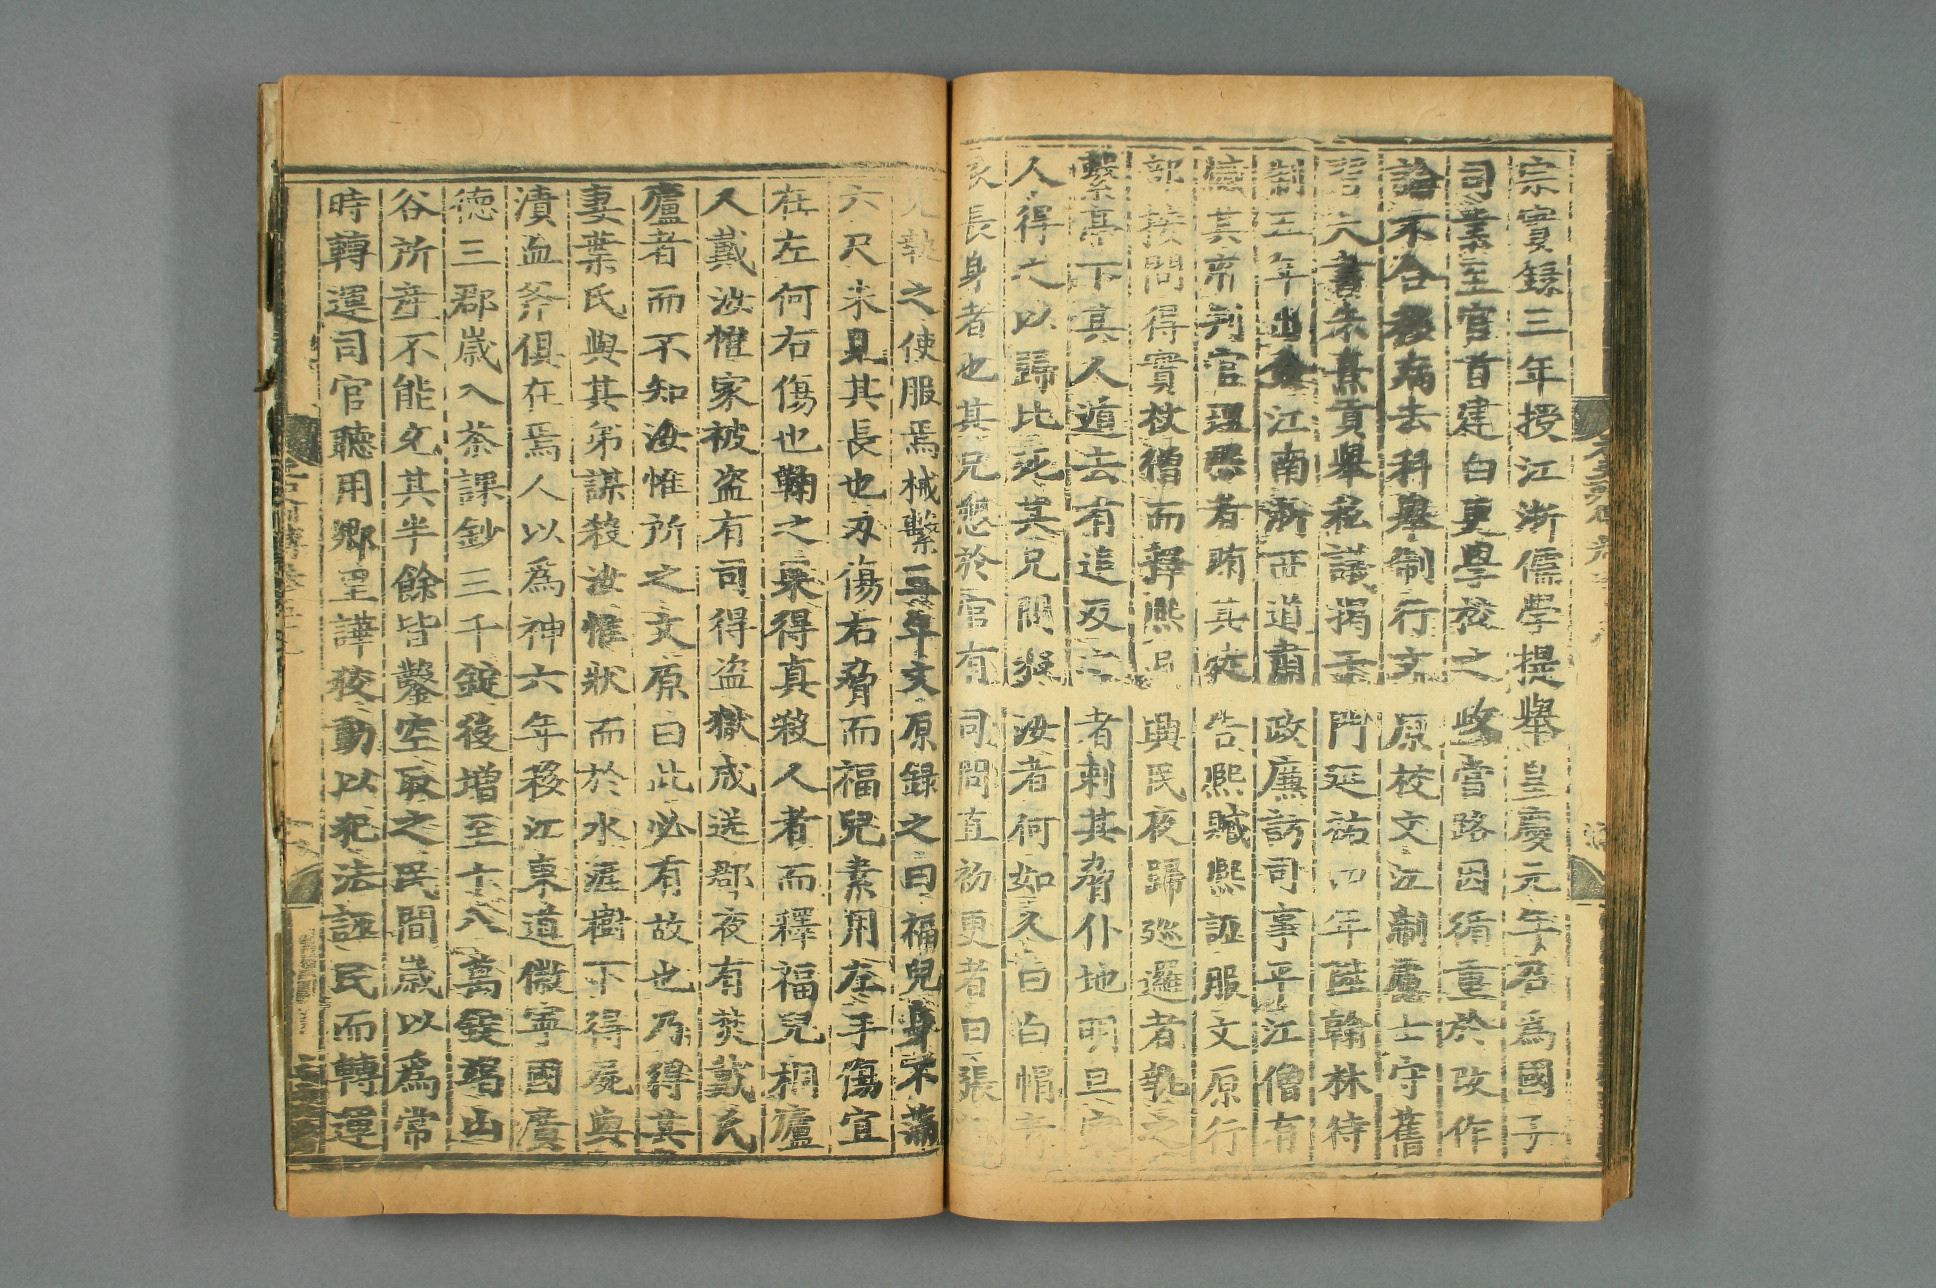 宗實錄三年授江浙儒學提舉皇慶元年召爲國子
司業至官首建白更學校之政當路因循重於改作
論不合移病去科舉制行文原校文江浙慮士守舊
習大書朱熹貢舉私議揭于門延祐四年陞翰林待
制五年出僉江南浙西道肅政廉訪司事平江僧有
憾其府判官理熙者賄其徒告熙贓熙誣服文原行
部按問得實杖僧而釋熙吳興民夜歸巡邏者執之
繫亭下其人遁去有追及之者刺其脅仆地明旦家
人得之以歸比死其兄問殺汝者何如人曰白帽青
衣長身者也其兄愬於官有司問直初更者曰張福
兒執之使服焉械繫三年文原錄之曰福兒身不滿
六尺未見其長也刃傷右脅而福兒素用左手傷宜
在左何右傷也鞫之果得真殺人者而釋福兒桐廬
人戴汝惟家被盜有司得盜獄成送郡夜有焚戴氏
廬者而不知汝惟所之文原曰此必有故也乃得其
妻葉氏與其弟謀殺汝惟狀而於水涯樹下得屍與
漬血斧俱在焉人以爲神六年移江東道徽寧國廣
德三郡歲入茶課鈔三千錠後增至十八萬錠竭山
谷所産不能充其半餘皆鑿空取之民間歲以爲常
時轉運司官聽用鄉里譁狡動以犯法誣民而轉運